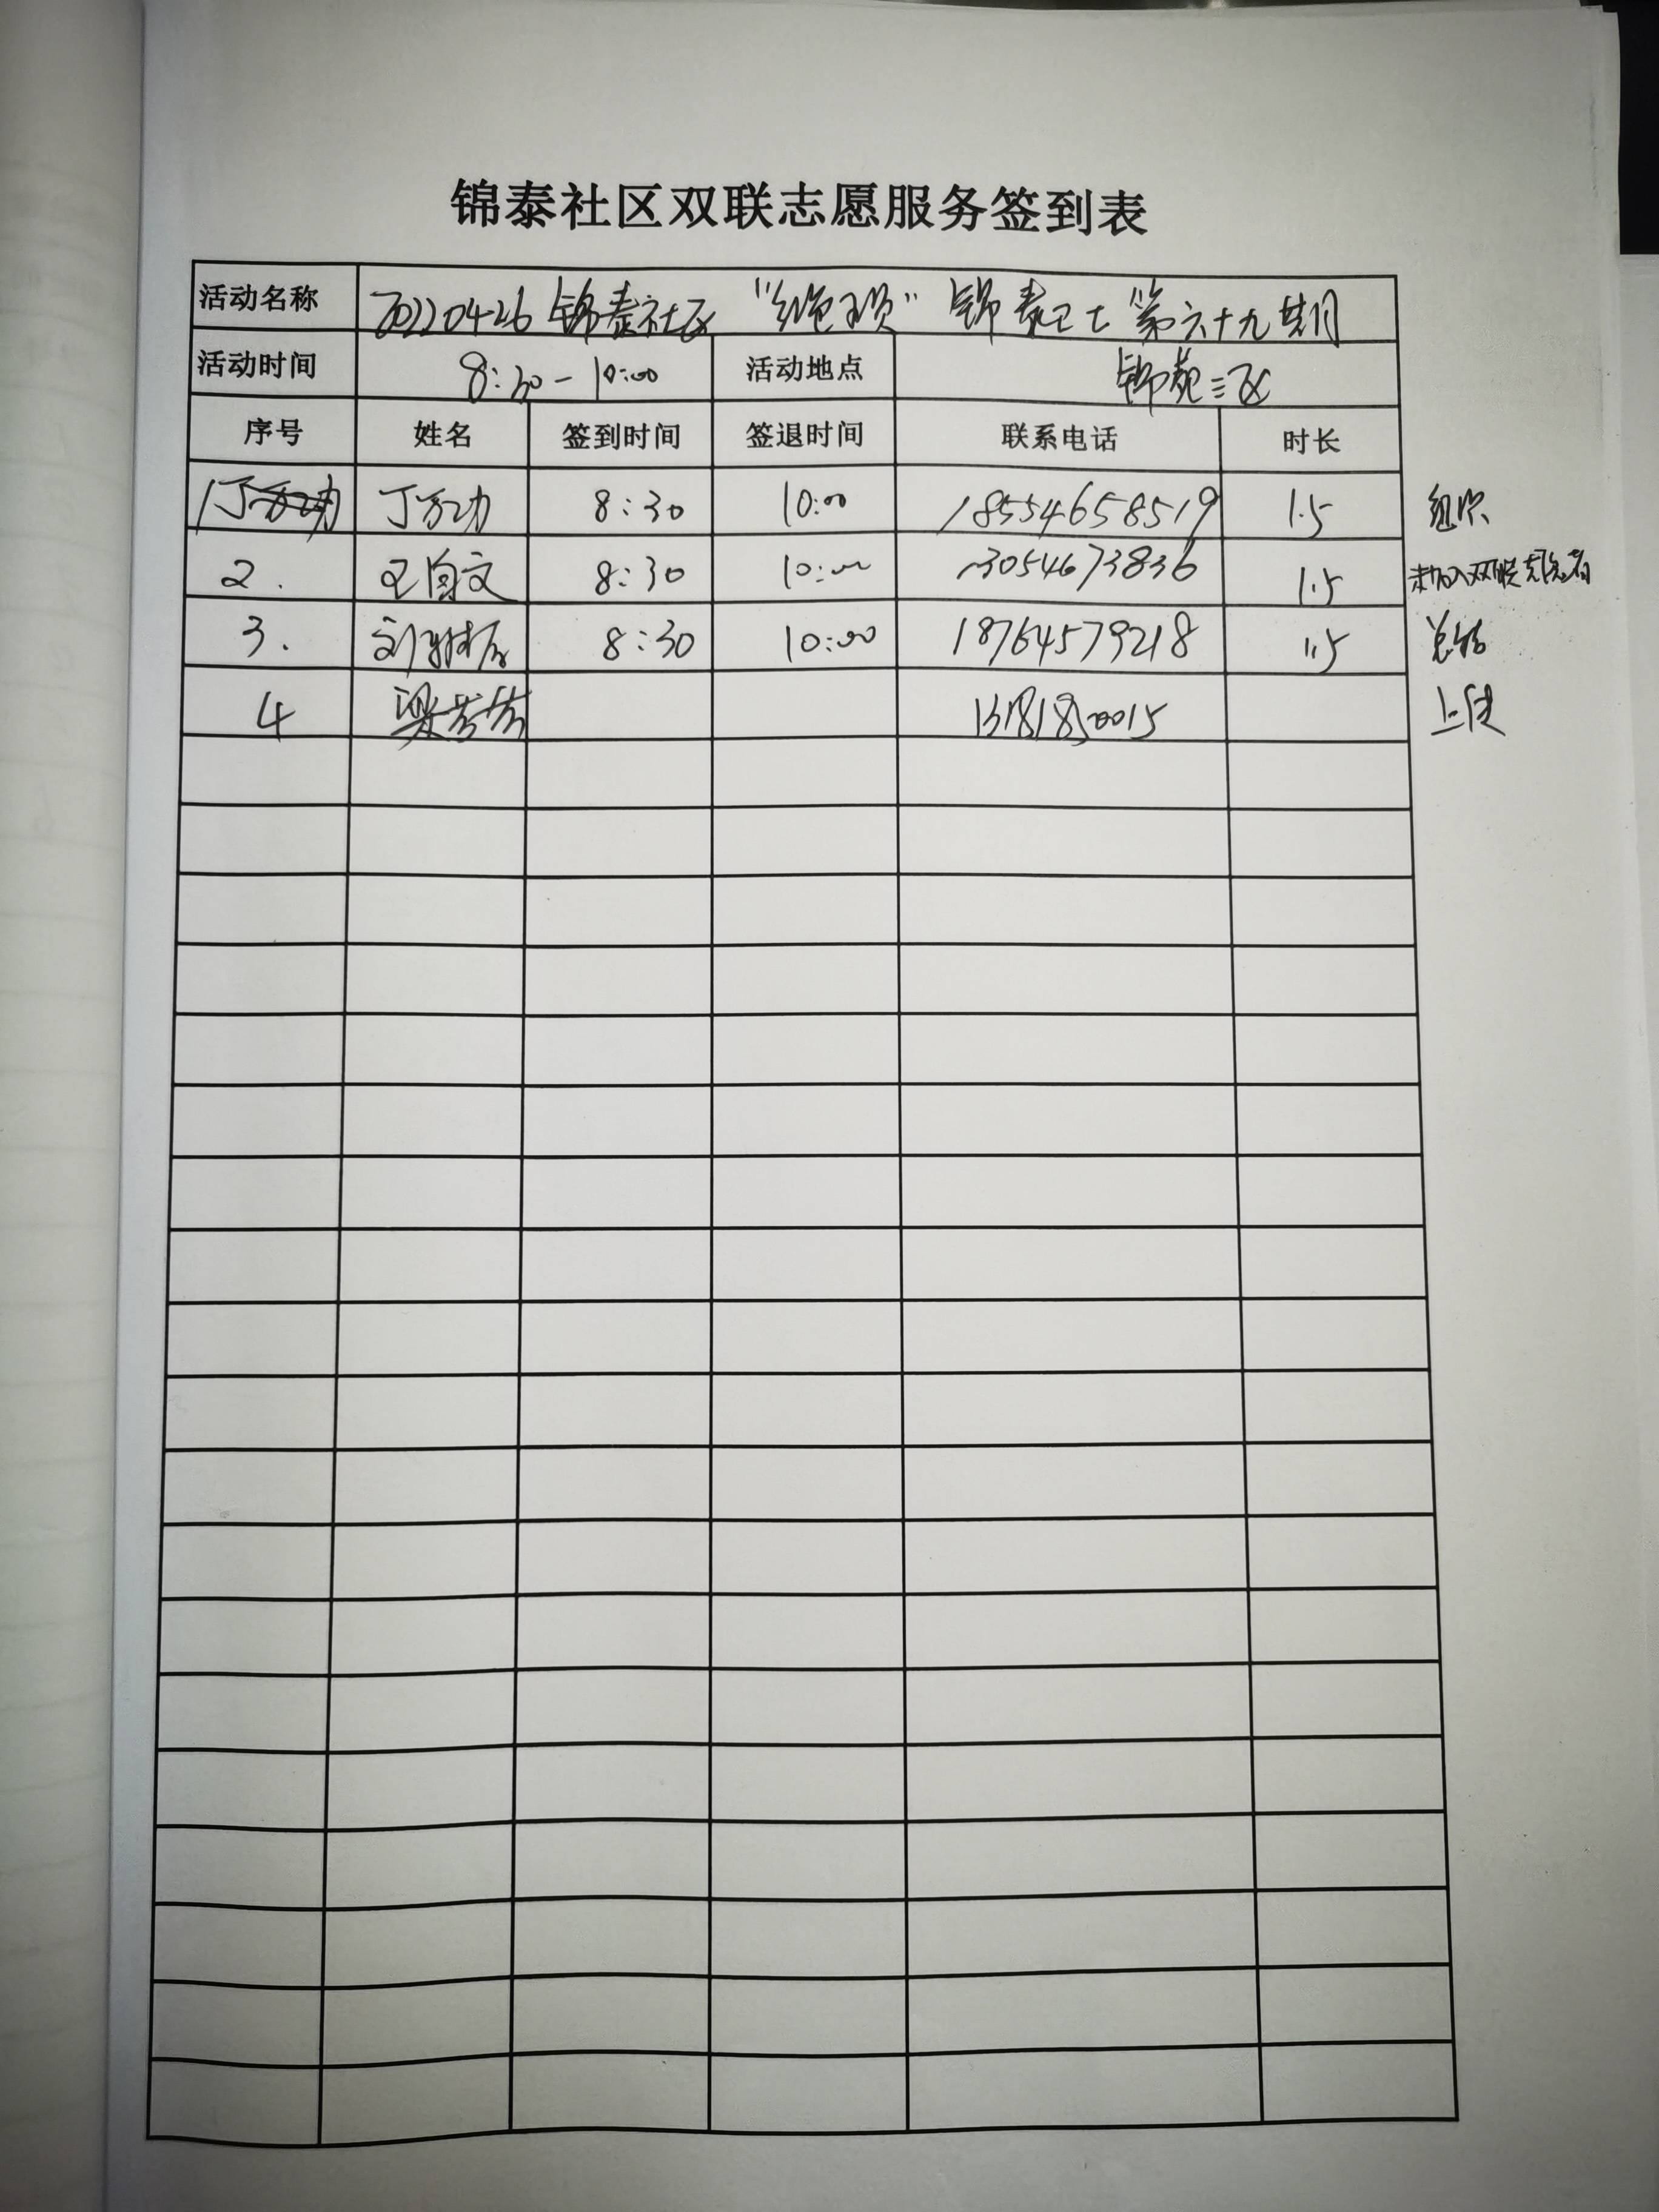 锦泰社区双联志愿服务签到表
活动名称 20220426 锦泰社区 "红色" 锦泰卫士第六十九期
活动时间 8:30-10:00 活动地点 锦苑三区
序号 姓名 签到时间 签退时间 联系电话 时长
1 丁万功 8:30 10:00 18554658519 1.5 组织
2. 王自文 8:30 10:00 13054673836 1.5 未加入双联志愿者
3. 刘 8:30 10:00 18764579218 1.5 总结
4 梁芳芳 13181850015 上传